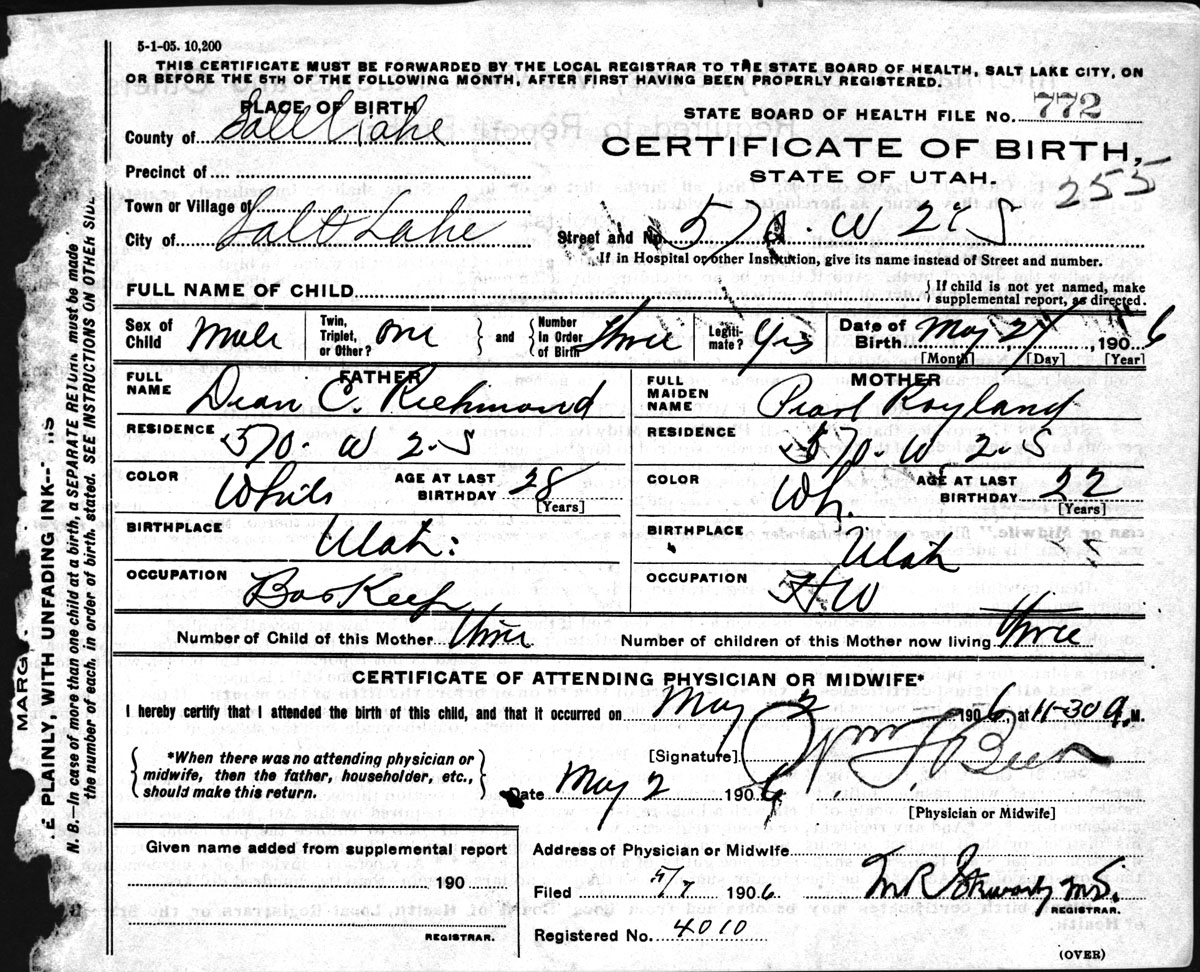 5-1-05. 10,200
THIS CERTIFICATE MUST BE FORWARDED BY THE LOCAL REGISTRAR TO THE STATE BOARD OF HEALTH, SALT LAKE CITY, ON
OR BEFORE THE 5TH OF THE FOLLOWING MONTH, AFTER FIRST HAVING BEEN PROPERLY REGISTERED.
PLACE OF BIRTH
STATE BOARD OF HEALTH FILE No. 772
County of Salt Lake
CERTIFICATE OF BIRTH,
Precinct of
STATE OF UTAH.
255
Town or Village of
City of Salt Lake
Street and No. 570. W 2 S
If in Hospital or other Institution, give its name instead of Street and number.
FULL NAME OF CHILD
If child is not yet named, make
supplemental report, as directed.
Sex of Child Male
Twin, Triplet, or Other? One
and
Number in Order of Birth three
Legitimate? Yes
Date of Birth May 2, 1906
[Month] [Day] [Year]
FATHER
FULL NAME Dean C. Richmond
MOTHER
FULL MAIDEN NAME Pearl
RESIDENCE 570. W 2. S
RESIDENCE 570. W 2. S
COLOR White
AGE AT LAST BIRTHDAY 28
[Years]
COLOR Wh.
AGE AT LAST BIRTHDAY 22
[Years]
BIRTHPLACE Utah.
BIRTHPLACE Utah
OCCUPATION BooKeep
OCCUPATION HW
Number of Child of this Mother three
Number of children of this Mother now living three
CERTIFICATE OF ATTENDING PHYSICIAN OR MIDWIFE*
I hereby certify that I attended the birth of this child, and that it occurred on May 2 1906 at 11-30 a. M.
*When there was no attending physician or
midwife, then the father, householder, etc.,
should make this return.
[Signature]
Date May 2 1906
[Physician or Midwife]
Given name added from supplemental report
190
REGISTRAR.
Address of Physician or Midwife
Filed 5/7 1906
REGISTRAR.
Registered No. 4010
(OVER)
MARG
E PLAINLY, WITH UNFADING INK--
N. B.—In case of more than one child at a birth, a SEPARATE RETURN must be made
the number of each, in order of birth, stated. SEE INSTRUCTIONS ON OTHER SIDE